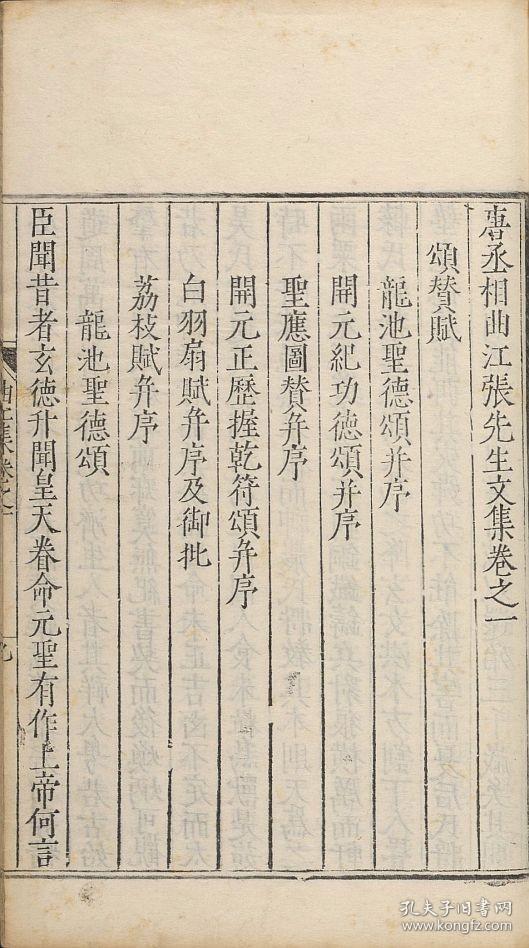 唐丞相曲江張先生文集卷之一
頌贊賦
龍池聖德頌并序
開元紀功德頌并序
聖應圖贊并序
開元正歷握乾符頌并序
白羽扇賦并序及御批
荔枝賦并序
龍池聖德頌
臣聞昔者玄德升聞皇天眷命元聖有作上帝何言
曲江集卷之一
九
孔夫子旧书网
www.kongfz.com